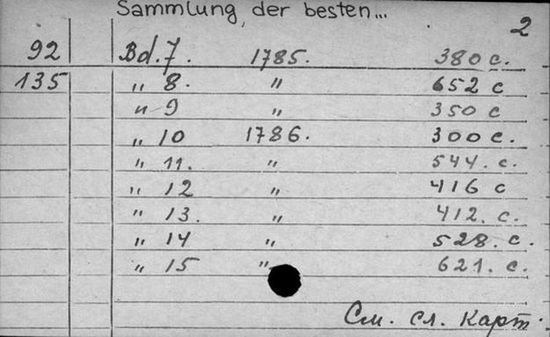 Sammlung der besten...
2
92 Bd. 7. 1785. 380 с.
135 „ 8. „ 652 с
„ 9 „ 350 с
„ 10 1786. 300 с.
„ 11. „ 544. с.
„ 12 „ 416 с
„ 13. „ 412. с.
„ 14 „ 528. с.
„ 15 „ 621. с.
См. сл. карт.